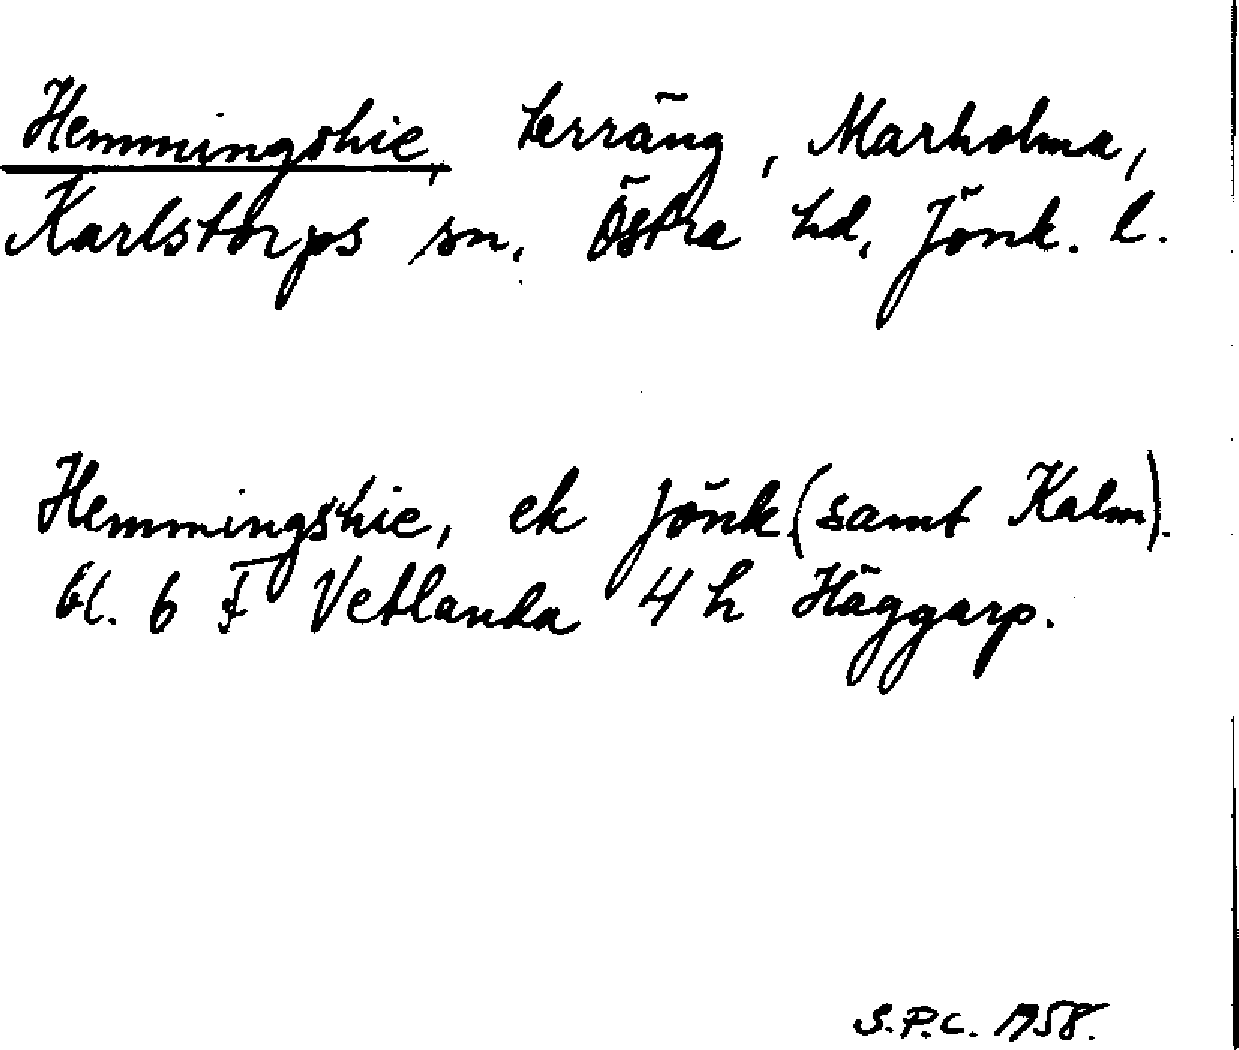 Hemmingshie, terräng, Marholma,
Karlstorps sn. Östra hd, Jönk. l.
Hemmingshie, ek Jönk. (samt Kalm).
bl. 6 F Vetlanda 4 h Häggarp.
S.P.C. 1958.